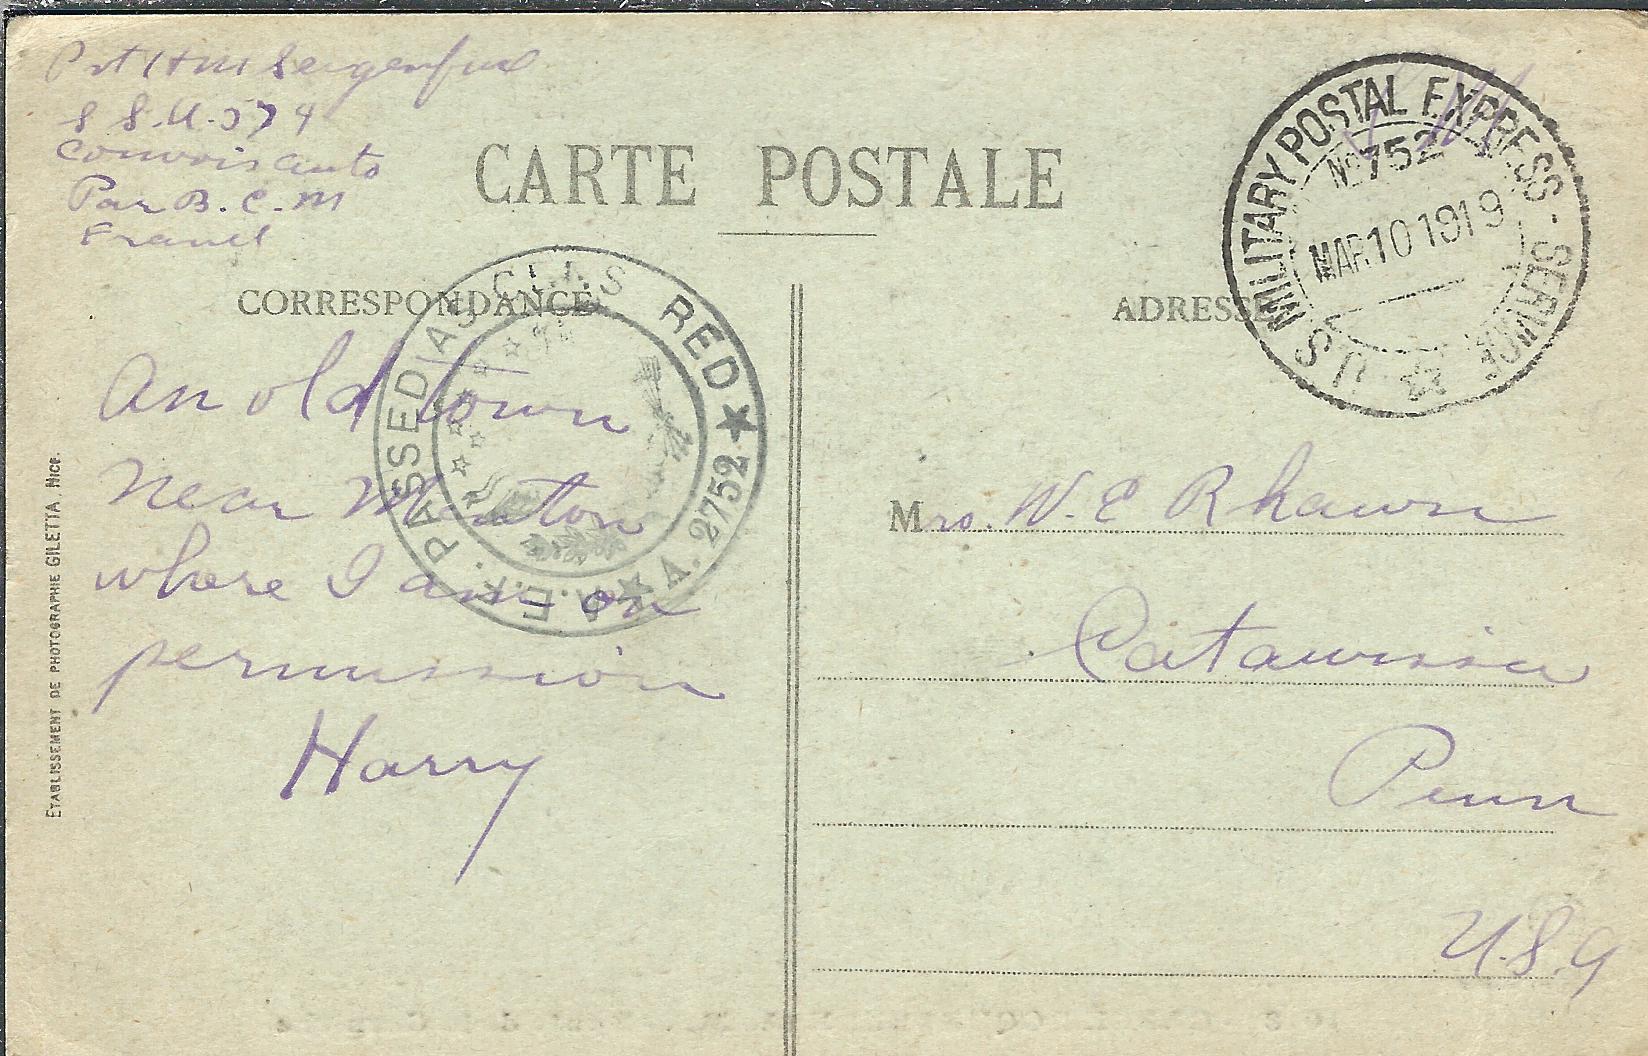 Pvt H M
S.S.U. 574
Convois auto
Par B.C.M
France
CARTE POSTALE
CORRESPONDANCE
ADRESSE
U.S. MILITARY POSTAL EXPRESS - SERVICE
No 752
MAR 10 1919
A.E.F. PASSED AS CENSORED
A. 2752
An old town
near Menton
where I am on
permission
Harry
Mrs. W. E Rhawn
Catawissa
Penn
U.S.A
ETABLISSEMENT DE PHOTOGRAPHIE GILETTA, NICE.